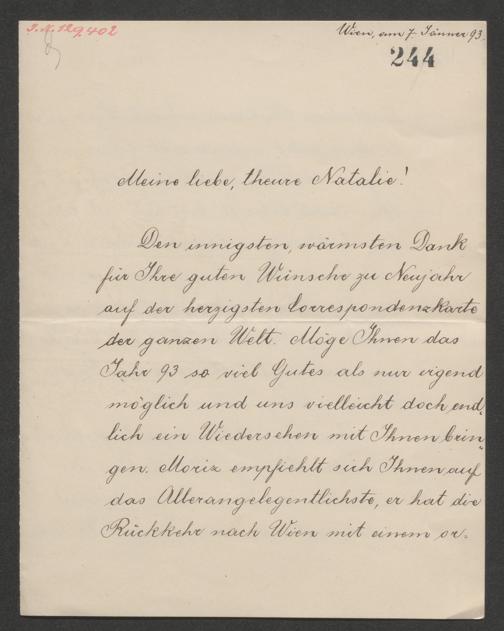 I.N. 129.402
Wien, am 7. Jänner 93.
244
Meine liebe, theure Natalie!
Den innigsten, wärmsten Dank
für Ihre guten Wünsche zu Neujahr
auf der herzigsten Correspondenzkarte
der ganzen Welt. Möge Ihnen das
Jahr 93 so viel Gutes als nur irgend
möglich und uns vielleicht doch end„
lich ein Wiedersehen mit Ihnen brin„
gen. Moriz empfiehlt sich Ihnen auf
das Allerangelegentlichste, er hat die
Rückkehr nach Wien mit einem or„